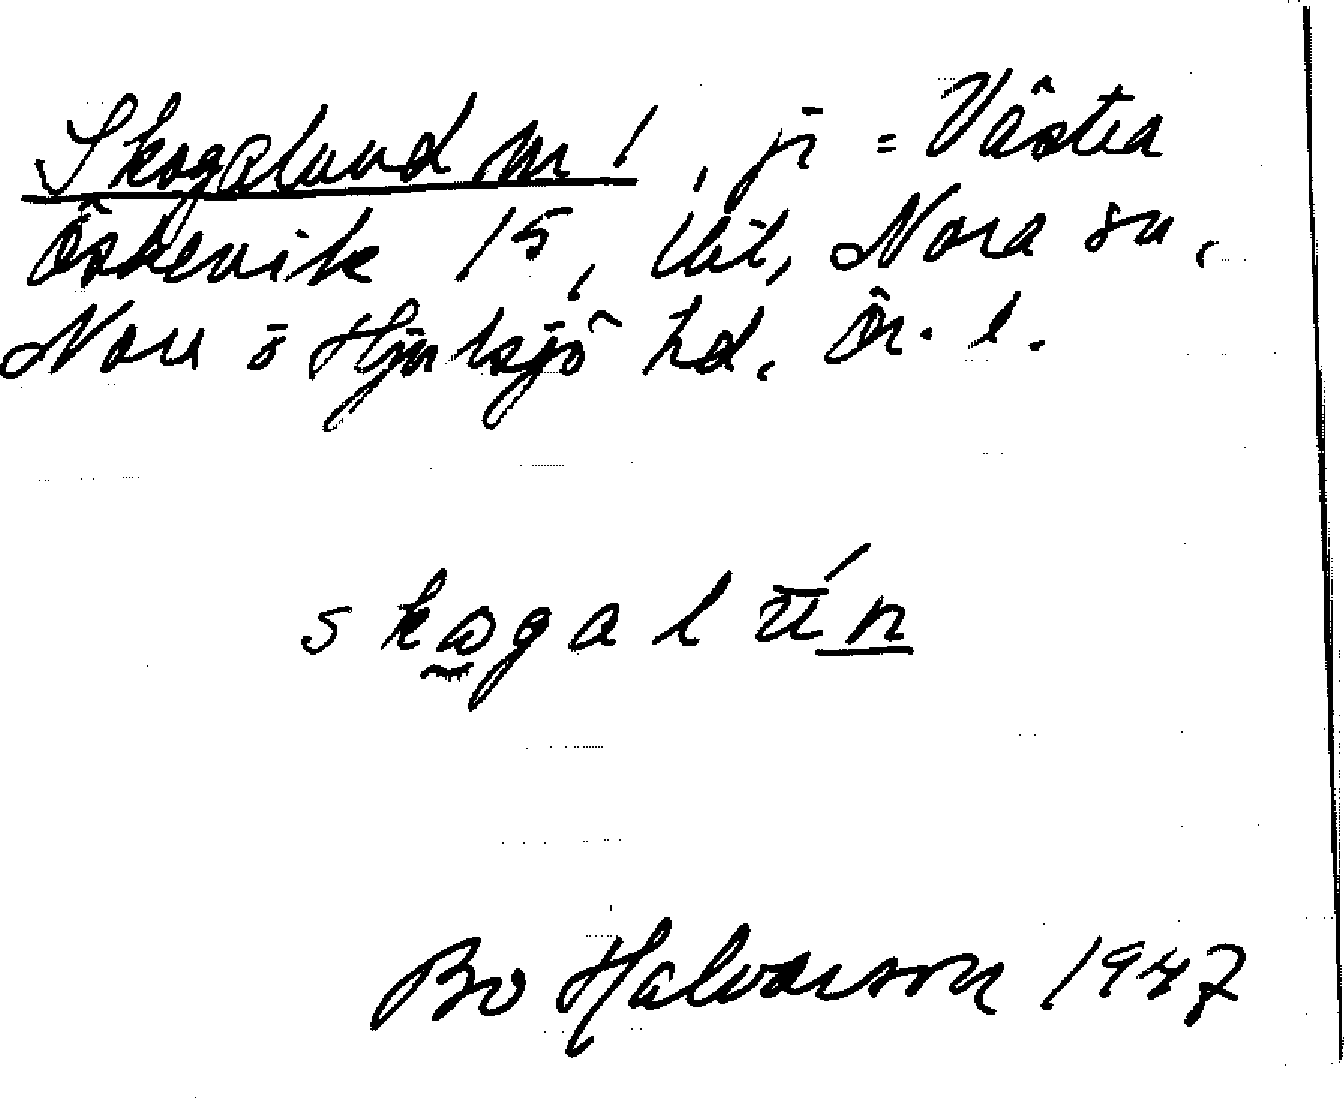 Skogalund nr 1, js = Västra
Öskevik 15, lät, Nora sn,
Nora o Hjulsjö hd. Ör. l.
skogalūn
Bo Halvarson 1947